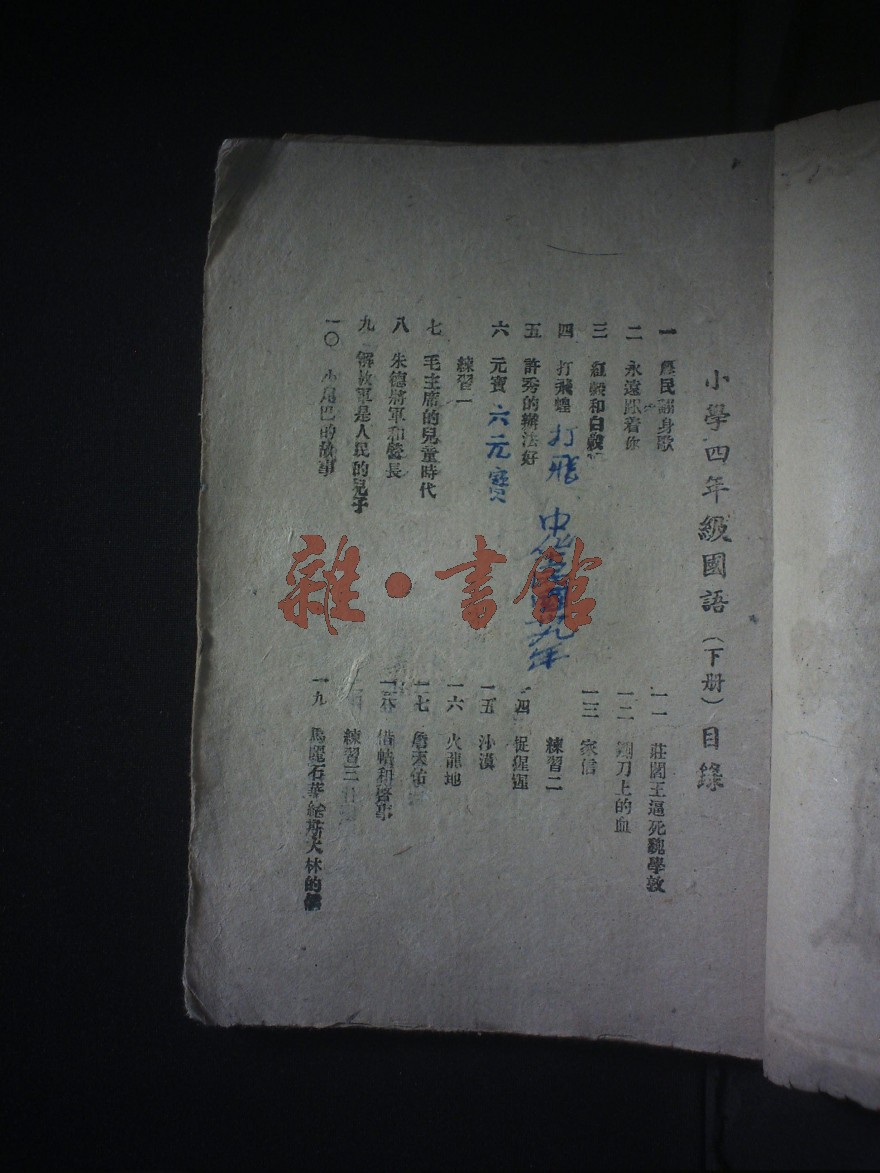 小學四年級國語（下册）目錄
一 農民翻身歌
二 永遠跟着你
三 紅軍和白軍
四 打飛蝗
打飛
五 許秀的辦法好
六 元寶
六元寶
練習一
七 毛主席的兒童時代
八 朱德將軍和營長
九 解放軍是人民的兒子
一〇 小尾巴的故事
一一 莊閻王逼死魏學敦
一二 鍘刀上的血
一三 家信
練習二
一四 捉猩猩
一五 沙漠
一六 火龍地
一七 詹天佑
借帖和啓事
練習三
一九 馬麗石華給斯大林的
雜·書館